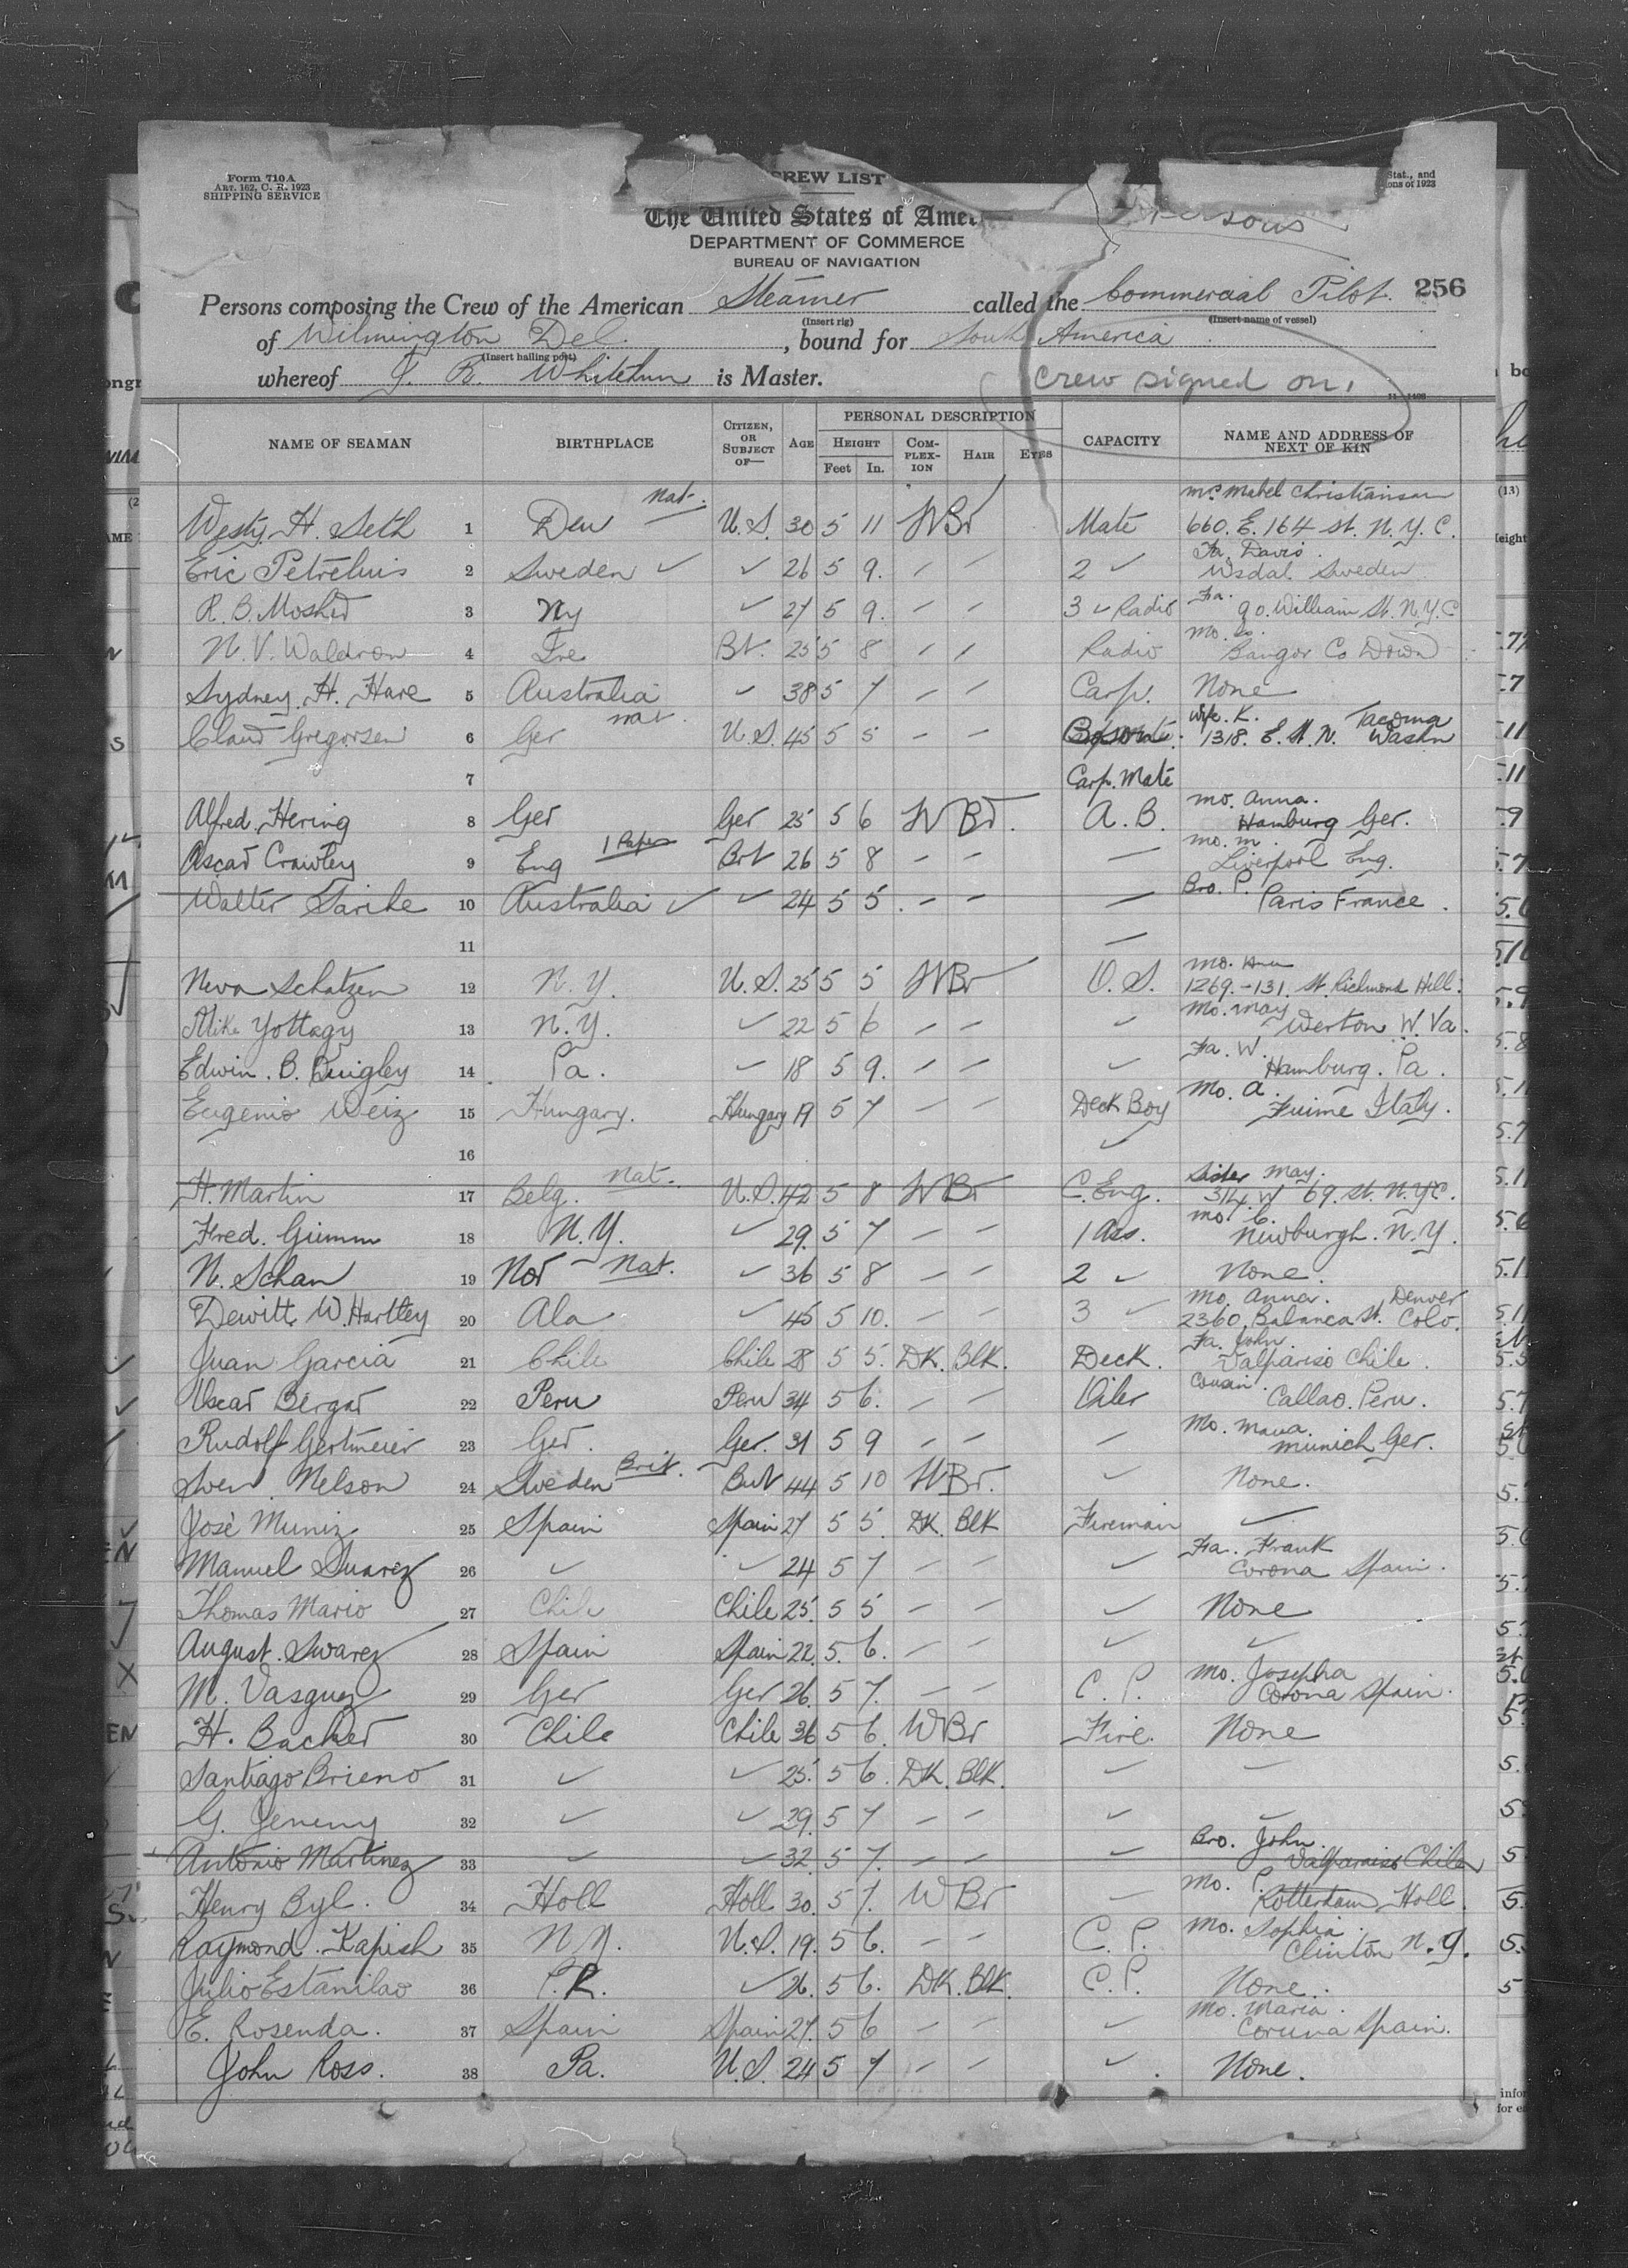 Form 710 A
ART. 162, C. R. 1923
SHIPPING SERVICE
CREW LIST
Stat., and
ons of 1923
The United States of Amer
DEPARTMENT OF COMMERCE
BUREAU OF NAVIGATION
256
Persons composing the Crew of the American Steamer called the Commercial Pilot.
(Insert rig) (Insert name of vessel)
of Wilmington Del. , bound for South America
(Insert hailing port)
whereof J. R. is Master.
Crew signed on.
NAME OF SEAMAN BIRTHPLACE CITIZEN, OR SUBJECT OF— AGE PERSONAL DESCRIPTION CAPACITY NAME AND ADDRESS OF NEXT OF KIN
HEIGHT COM-PLEX-ION HAIR EYES
Feet In.
Mabel Christiansen
Westy. H. Seth 1 Den Nat. U.S. 30 5 11 W Br Mate 660. E. 164 St. N.Y.C.
Fa. Davis.
Eric Petrelius 2 Sweden ✓ ✓ 26 5 9. – – 2 ✓ Sweden
Fa.
R. B. 3 Ny ✓ 27 5 9. – – 3 ✓ Radio 90. William St. N.Y.C
Mo. Do.
N. V. Waldron 4 Ire Bt. 25 5 8 – – Radio Bangor Co Down
Sydney. H. Hare 5 Australia ✓ 38 5 7 – – Carp. None
Wife. K. Tacoma
Claud Gregorsen 6 Ger nat. U.S. 45 5 5 – – 1318. E. St. N. Washn
7 Carp. Mate
Mo. Anna.
Alfred. Hering 8 Ger Ger 25 5 6 W Br. A. B. Hamburg Ger.
Mo. M.
Ascar Crawley 9 Eng 1 Paper Brt 26 5 8 – – — Liverpool Eng.
Bro. P.
Walter 10 Australia ✓ ✓ 24 5 5. – – — Paris France.
11 —
Mo.
Neva Schatzen 12 N.Y. U.S. 25 5 5 W Br O.S. 1269.-131. St. Richmond Hill.
Mo. May
Mike Yottagy 13 N.Y. ✓ 22 5 6 – – ✓ Werton W. Va.
Fa. W.
Edwin. B. Quigley 14 Pa. ✓ 18 5 9. – – ✓ Hamburg. Pa.
Mo. A.
Eugenio Weiz 15 Hungary. Hungary 19 5 7 – – Deck Boy Fuime Italy.
16 ✓
Sister May.
H. Martin 17 Belg. Nat. U.S. 42 5 8 W Br C. Eng. 314. W 69. St. N.Y.C.
Mo. C.
Fred. Gumm 18 N.Y. ✓ 29. 5 7 – – 1 Ass. Newburgh. N.Y.
N. Schan 19 Nor Nat. ✓ 36 5 8 – – 2 ✓ None.
Mo. Anna. Denver
Dewitt. W. Hartley 20 Ala ✓ 45 5 10. – – 3 ✓ 2360, Balanca St. Colo.
Fa. John
Juan Garcia 21 Chile Chile 28 5 5. DK. Blk. Deck. Valpariso Chile.
Cousin.
Oscar Bergar 22 Peru Peru 34 5 6. – – Oiler Callao. Peru.
Mo.
Rudolf Gertmeier 23 Ger. Ger. 31 5 9 – – — Munich Ger.
Sven. Nelson 24 Sweden Brit. Brit 44 5 10 W Br. ✓ None.
José Muniz 25 Spain Spain 27 5 5. DK. Blk Fireman ✓
Fa. Frank
Manuel Suarez 26 ✓ ✓ 24 5 7 – – ✓ Corona Spain.
Thomas Mario 27 Chile Chile 25. 5 5 – – ✓ None
August. Swarez 28 Spain Spain 22. 5. 6. – – ✓ ✓
Mo. Josepha
M. Vasquez 29 Ger Ger 26. 5 7. – – C. P. Corona Spain.
H. Bacher 30 Chile Chile 36 5 6. W Br Fire. None
Santiago Brieno 31 ✓ ✓ 25. 5 6. DK. Blk. – –
G. 32 ✓ ✓ 29. 5 7 – – ✓ ✓
Bro. John.
Antonio Martinez 33 ✓ ✓ 32. 5 7. – – ✓ Valparaiso Chile
Mo. P.
Henry Byl. 34 Holl Holl 30. 5 7. W Br — Rotterdam, Holl.
Mo. Sophia.
Raymond. Kapish 35 N.Y. U.S. 19. 5 6. – – C. P. Clinton N.J.
Julio Estanilao 36 P.R. ✓ 26. 5 6. DK. Blk. C. P. None.
Mo. Maria.
E. Rosenda. 37 Spain Spain 27. 5 6 – – ✓ Coruna Spain.
John Ross. 38 Pa. U.S. 24 5 7 – – ✓ None.